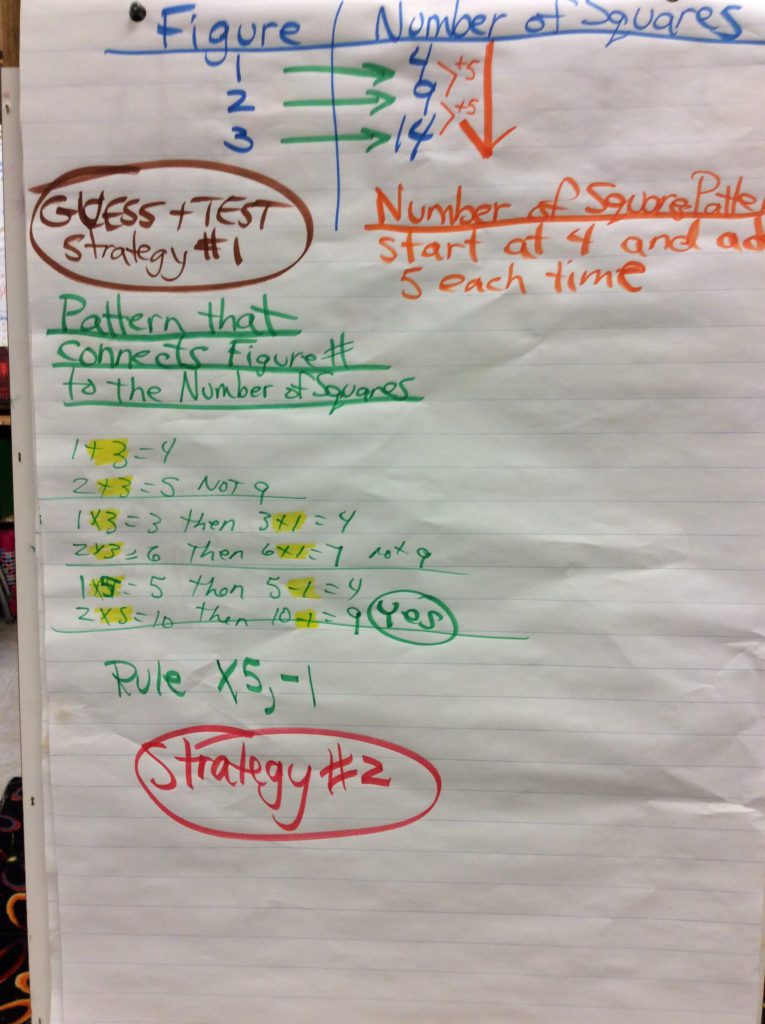 Figure Number of Squares
1 → 4
2 → 9
3 → 14
>+5
>+5
GUESS + TEST
Strategy #1
Number of Square Patte
start at 4 and ad
5 each time
Pattern that
connects Figure #
to the Number of Squares
1+3=4
2+3=5 NOT 9
1x3=3 then 3+1=4
2x3=6 Then 6x1=7 not 9
1x5=5 then 5-1=4
2x5=10 then 10-1=9 Yes
Rule x5,-1
Strategy #2